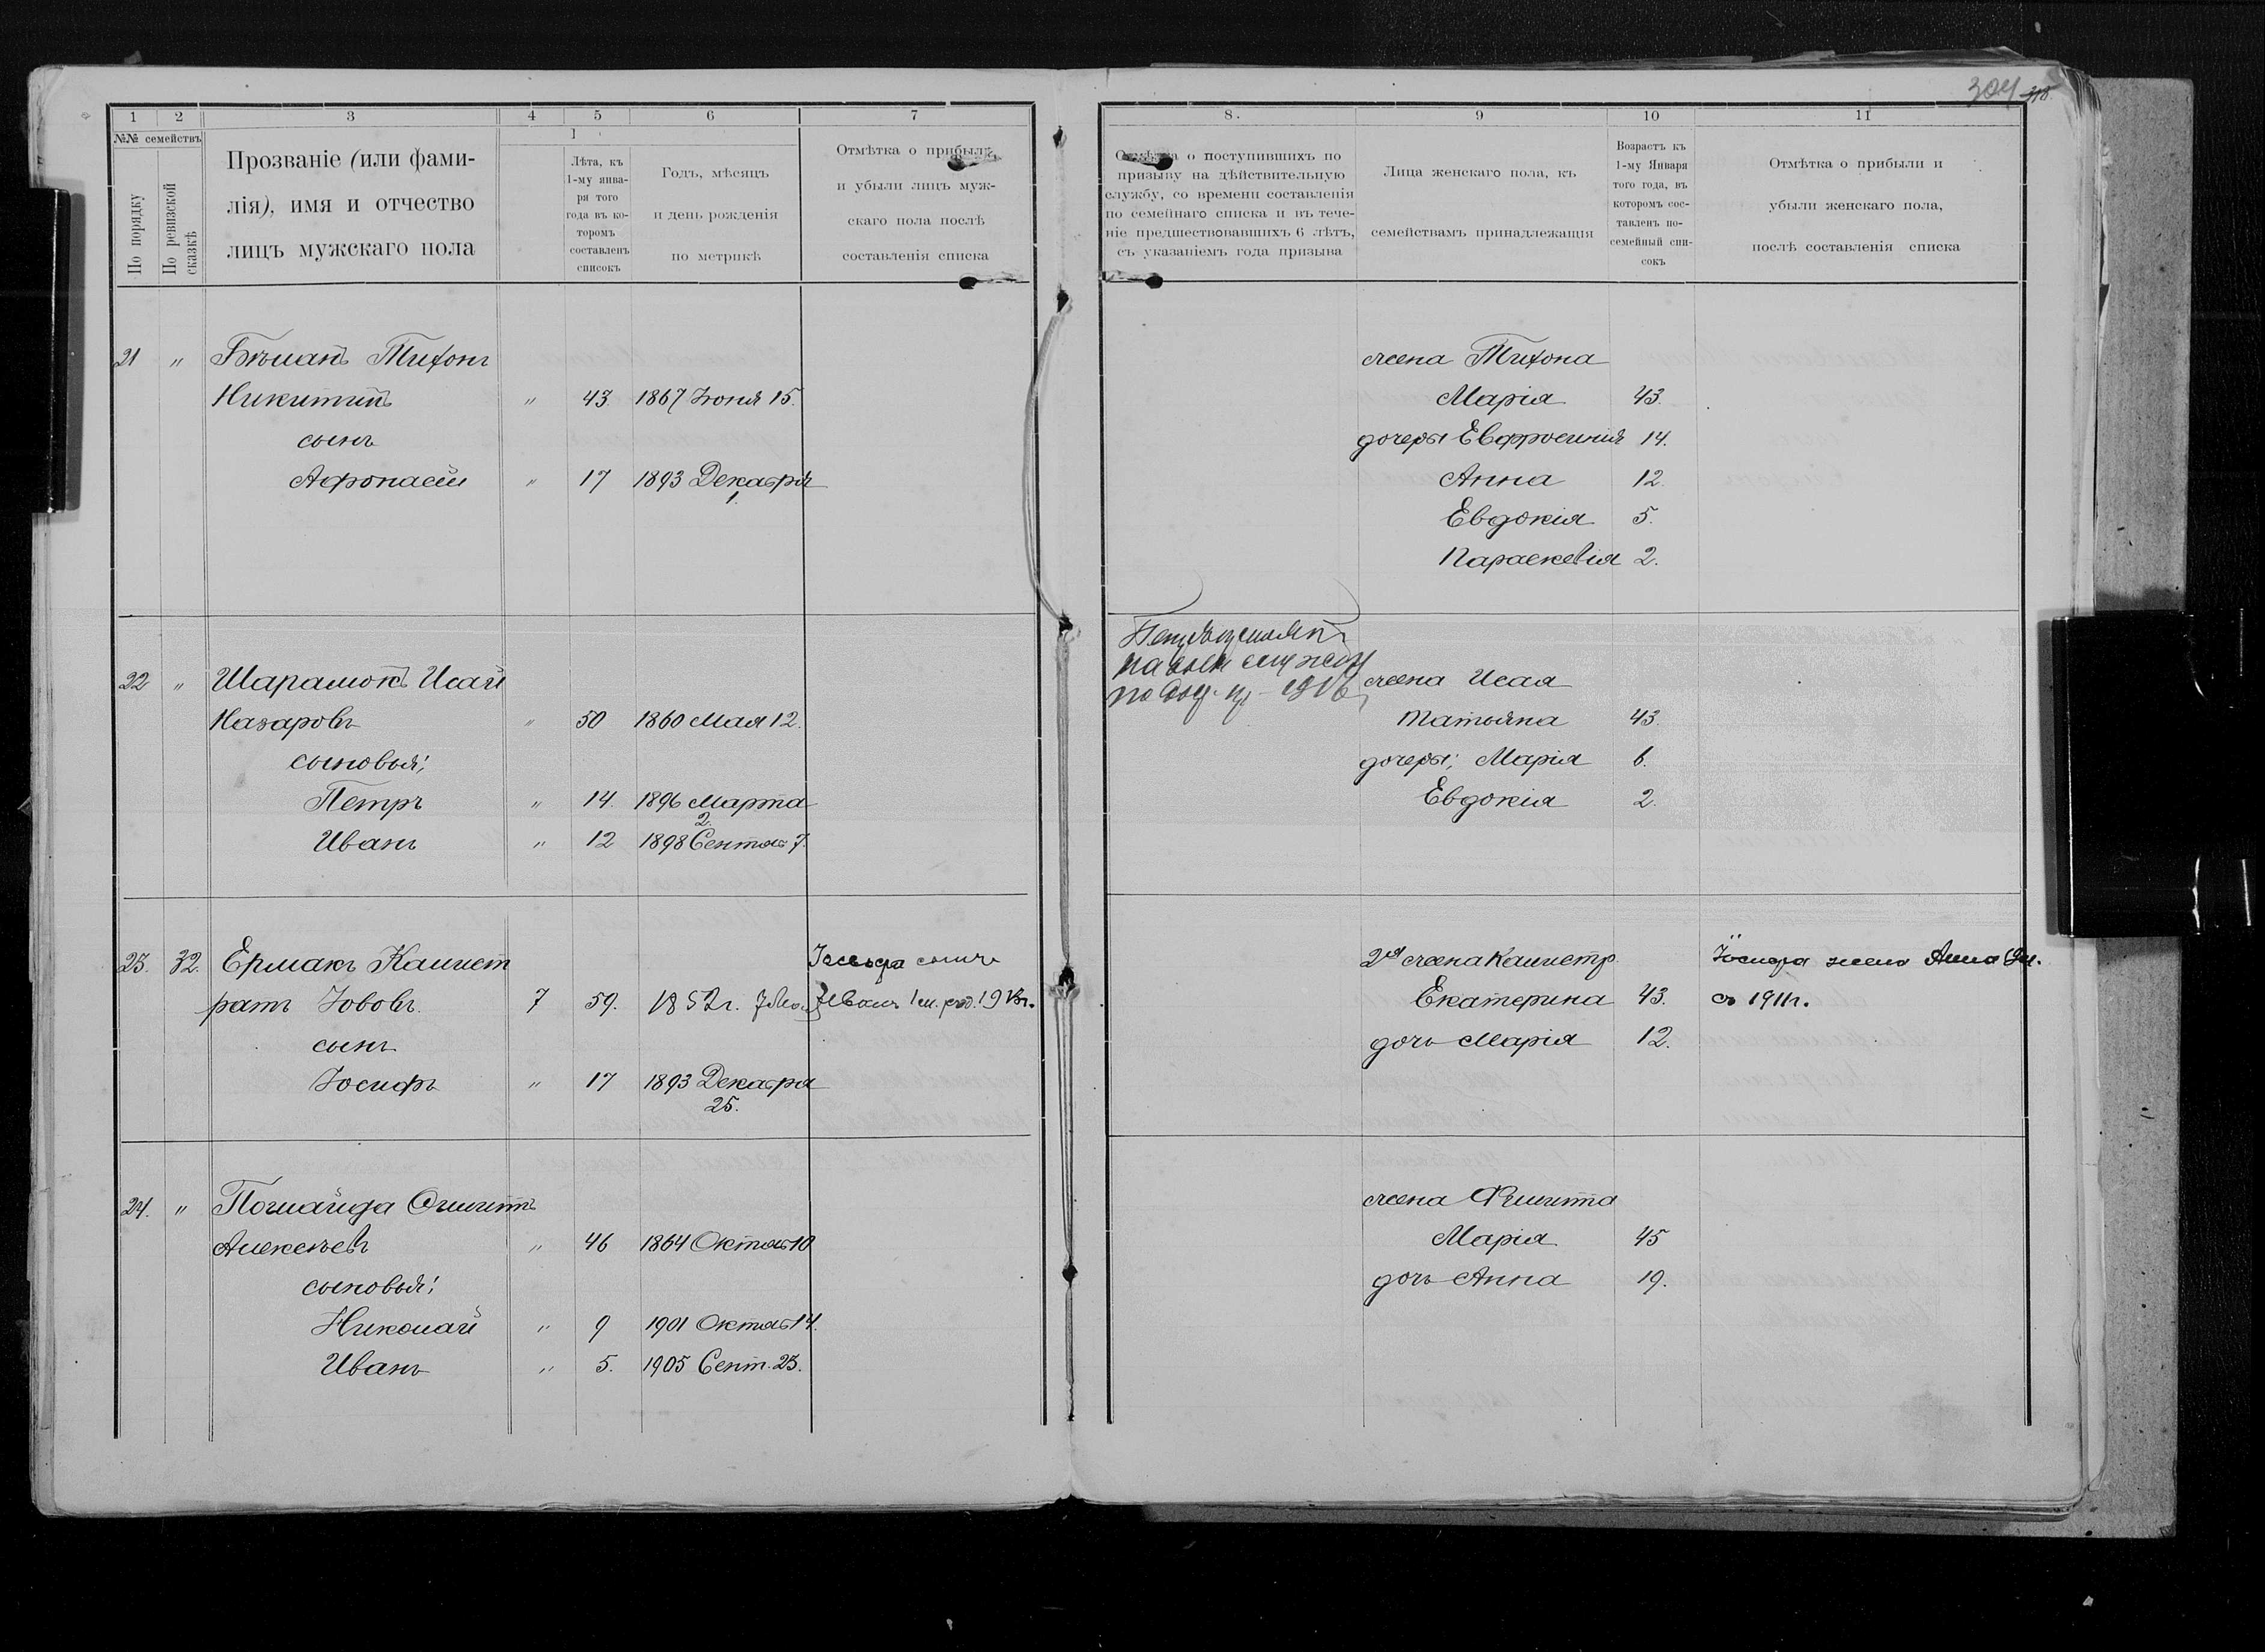 304
1 2 3 4 5 6 7
№№ семействъ
По порядку
По ревизской сказкѣ
Прозваніе (или фами-
лія), имя и отчество
лицъ мужскаго пола
Лѣта, къ
1-му янва-
ря того
года въ ко-
торомъ
составленъ
списокъ
Годъ, мѣсяцъ
и день рожденія
по метрикѣ
Отмѣтка о прибыли
и убыли лицъ муж-
скаго пола послѣ
составленія списка
8. 9 10 11
Отмѣтка о поступившихъ по
призыву на дѣйствительную
службу, со времени составленія
по семейнаго списка и въ тече-
ніе предшествовавшихъ 6 лѣтъ,
съ указаніемъ года призыва
Лица женскаго пола, къ
семействамъ принадлежащія
Возрастъ къ
1-му Января
того года, въ
которомъ сос-
тавленъ по-
семейный спи-
сокъ
Отмѣтка о прибыли и
убыли женскаго пола,
послѣ составленія списка
21 " Тихонъ
Никитинъ " 43. 1867 Іюня 15.
сынъ
Афонасій " 17 1893 Декабря
1.
жена Тихона
Марія 43.
дочеры Евфросинія 14.
Анна 12.
Евдокія 5.
Параскевія 2.
22 " Шарамокъ Исай
Назаровъ " 50 1860 Мая 12.
сыновья;
Петръ " 14. 1896 Марта
2.
Иванъ " 12 1898 Сентяб 7.
жена Исая
Татьяна 43.
дочеры; Марія 6.
Евдокія 2.
23. 32. Ермакъ Калист
ратъ Іововъ. 7 59. 1852г.
сынъ
Іосифъ " 17 1893 Декабря
25.
Іосифа сынъ
Иванъ
2я жена Калистр.
Екатерина 43.
дочь Марія 12.
Іосифа жена Анна
съ 1911г.
24. "
Алексѣевъ " 46 1864 Октяб 10
сыновья;
Николай " 9 1901 Октяб 14.
Иванъ " 5. 1905 Сент. 23.
жена
Марія. 45
дочь Анна 19.